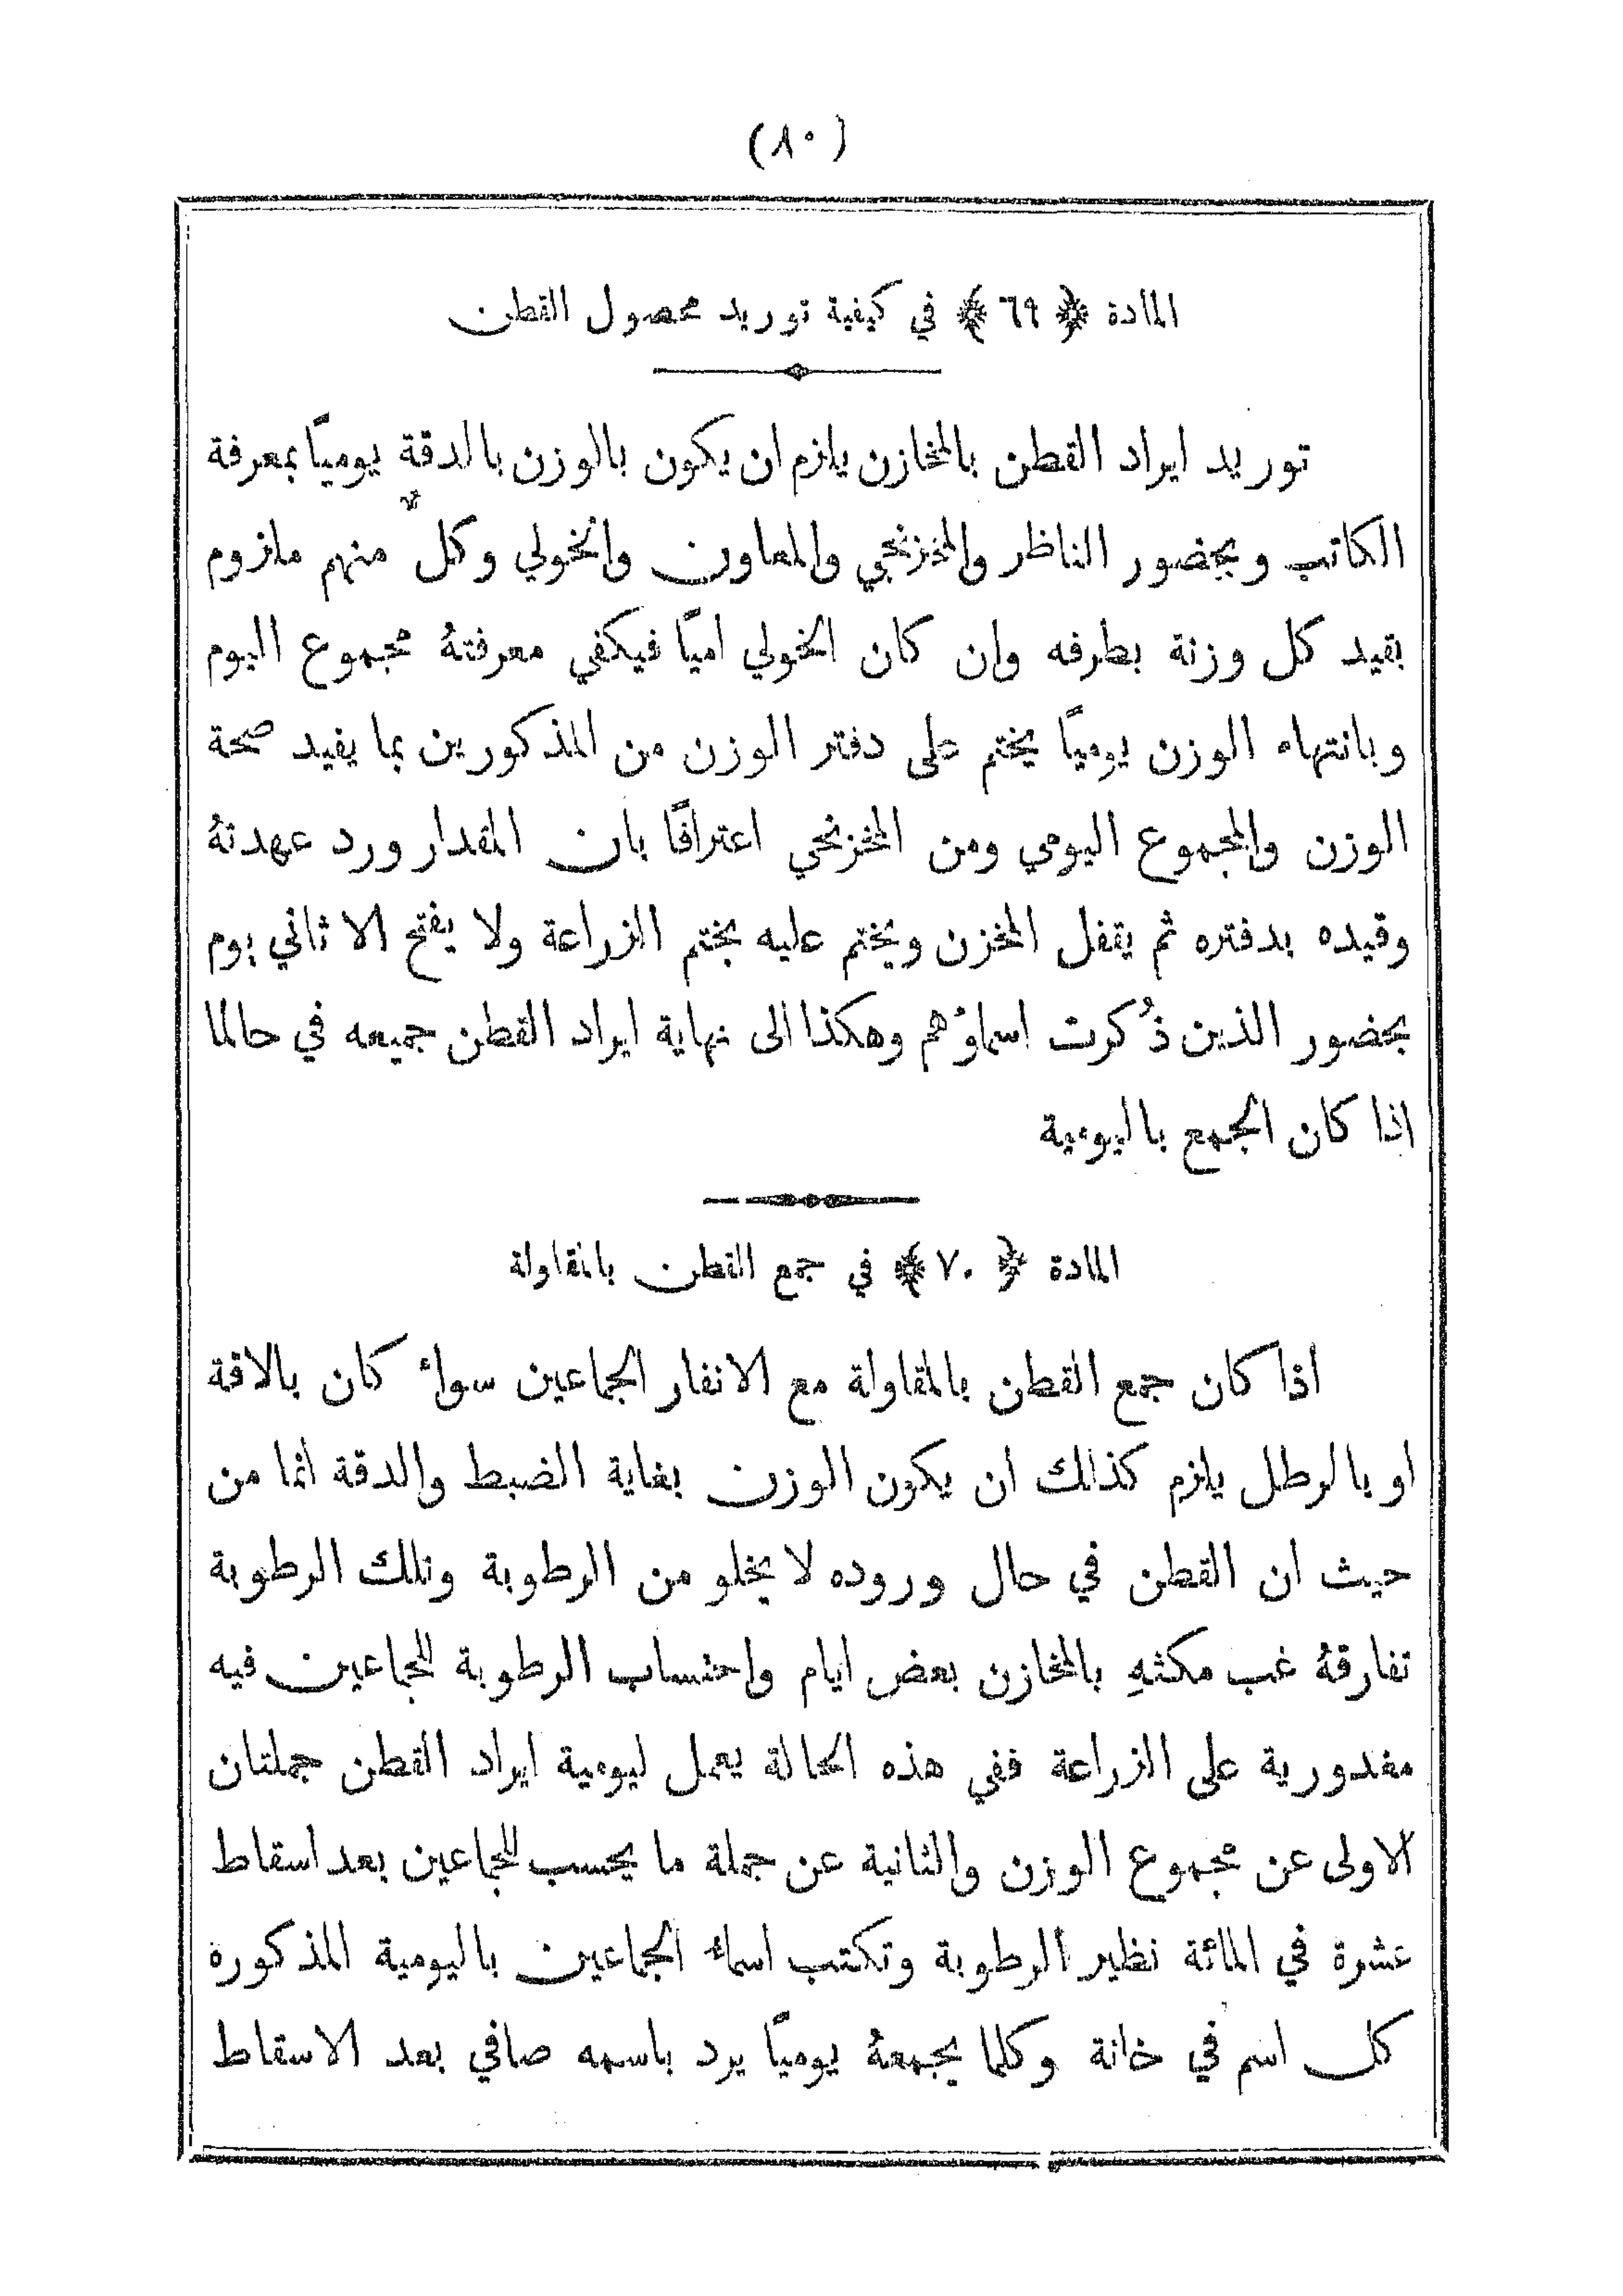 (٨٠)
المادة ﴿٦٩﴾ في كيفية توريد محصول القطن
توريد ايراد القطن بالمخازن يلزم ان يكون بالوزن بالدقة يوميًا بمعرفة
الكاتب وبحضور الناظر والمخزنجي والمعاون والخولي وكلٌ منهم ملزوم
بقيد كل وزنة بطرفه وان كان الخولي اميًا فيكفي معرفتهُ مجموع اليوم
وبانتهاء الوزن يوميًا يختم على دفتر الوزن من المذكورين بما يفيد صحة
الوزن والمجموع اليومي ومن المخزنجي اعترافًا بأن المقدار ورد عهدتهُ
وقيده بدفتره ثم يقفل المخزن ويختم عليه بختم الزراعة ولا يفتح الا ثاني يوم
بحضور الذين ذُكرت اسماؤهم وهكذا الى نهاية ايراد القطن جميعه في حالما
اذا كان الجمع باليومية
المادة ﴿٧٠﴾ في جمع القطن بالمقاولة
اذا كان جمع القطن بالمقاولة مع الانفار الجماعين سواء كان بالاقة
او بالرطل يلزم كذلك ان يكون الوزن بغاية الضبط والدقة انما من
حيث ان القطن في حال وروده لا يخلو من الرطوبة وتلك الرطوبة
تفارقهُ غب مكثهِ بالمخازن بعض ايام واحتساب الرطوبة للجماعين فيه
مغدورية على الزراعة ففي هذه الحالة يعمل ليومية ايراد القطن جملتان
الاولى عن مجموع الوزن والثانية عن جملة ما يحسب للجماعين بعد اسقاط
عشرة في المائة نظير الرطوبة وتكتب اسماء الجماعين باليومية المذكوره
كل اسم في خانة وكلما يجمعهُ يوميًا يرد باسمه صافي بعد الاسقاط